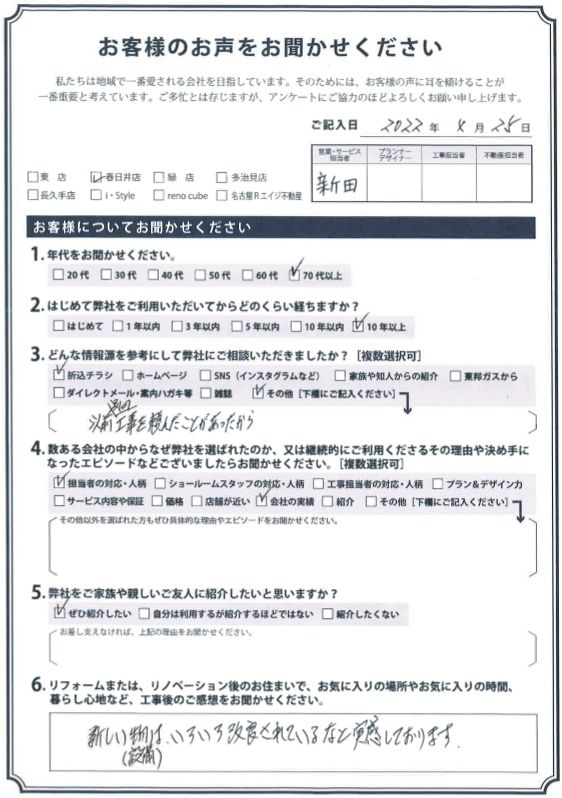 お客様のお声をお聞かせください
私たちは地域で一番愛される会社を目指しています。そのためには、お客様の声に耳を傾けることが
一番重要と考えています。ご多忙とは存じますが、アンケートにご協力のほどよろしくお願い申し上げます。
ご記入日 2022 年 4 月 25 日
営業・サービス担当者 プランナーデザイナー 工事担当者 不動産担当者
新田
□東 店 ☑春日井店 □緑 店 □多治見店
□長久手店 □i・Style □reno cube □名古屋Rエイジ不動産
お客様についてお聞かせください
1. 年代をお聞かせください。
□20代 □30代 □40代 □50代 □60代 ☑70代以上
2. はじめて弊社をご利用いただいてからどのくらい経ちますか？
□はじめて □1年以内 □3年以内 □5年以内 □10年以内 ☑10年以上
3. どんな情報源を参考にして弊社にご相談いただきましたか？［複数選択可］
☑折込チラシ □ホームページ □SNS（インスタグラムなど） □家族や知人からの紹介 □東邦ガスから
□ダイレクトメール・案内ハガキ等 □雑誌 ☑その他［下欄にご記入ください］
以前工事を頼んだことがあったから
4. 数ある会社の中からなぜ弊社を選ばれたのか、又は継続的にご利用くださるその理由や決め手に
なったエピソードなどございましたらお聞かせください。［複数選択可］
☑担当者の対応・人柄 □ショールームスタッフの対応・人柄 □工事担当者の対応・人柄 □プラン＆デザイン力
□サービス内容や保証 □価格 □店舗が近い ☑会社の実績 □紹介 □その他［下欄にご記入ください］
その他以外を選ばれた方もぜひ具体的な理由やエピソードをお聞かせください。
5. 弊社をご家族や親しいご友人に紹介したいと思いますか？
☑ぜひ紹介したい □自分は利用するが紹介するほどではない □紹介したくない
お差し支えなければ、上記の理由をお聞かせください。
6. リフォームまたは、リノベーション後のお住まいで、お気に入りの場所やお気に入りの時間、
暮らし心地など、工事後のご感想をお聞かせください。
新しい物は、いろいろ改良されているなと実感しております。
(設備)